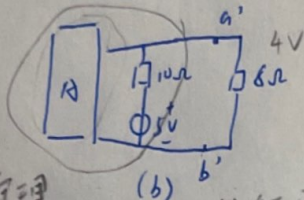 a'
4V
A
10Ω
8Ω
+
5V
-
b'
(b)